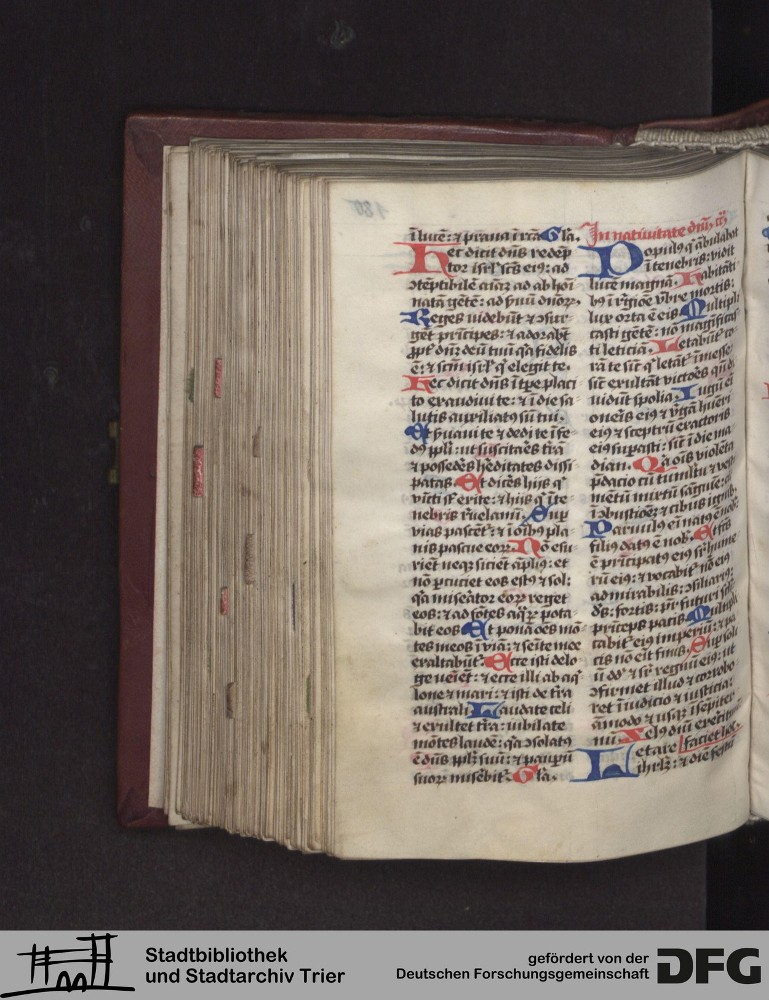 ī lucē: ⁊ praua ī rc̄ā Gla.
Hec dicit dn̄s redēp
tor isrl' scs̄ eiꝰ: ad
ↄtēptibilē aīaꝫ ad abhoī
natā gētē: ad ẜuū dnoꝝ.
Reges uidebūt ⁊ ↄsur
gēt prīcipes: ⁊ adorabūt
ꝓpt' dn̄ꝫ deū tuū qꝛ fidelis
ē: ⁊ scm̄ isrl' q' elegit te.
Hec dicit dn̄s ī tꝑe placi
to exaudiui te: ⁊ ī die sa
lutis auxiliatꝰ sū tui.
Et ẜuaui te ⁊ dedi te ī fe
dꝰ ppl'i: ut suscitaēs trā
⁊ possedēs h'editates dissi
patas. Et dicēs hijs q'
vīcti sūt exite: ⁊ hijs q' ī te
nebris reuelamī. Sup
vias pascēt': ⁊ ī oībꝰ pla
nis pascue eoꝝ. Nō esu
rient neqꝫ sicient āpliꝰ: et
nō ꝑcuciet eos estꝰ ⁊ sol:
qꝛ miseātor eoꝝ reget
eos: ⁊ ad fōtes aqꝝ pota
bit eos Et ponā oēs mō
tes meos ī viā: ⁊ seīte mee
exaltabūt'. Ecce isti de lō
ge ueīēt: ⁊ ecce illi ab aq'
lone ⁊ mari: ⁊ isti de trā
australi Laudate celi
⁊ exultet trā: iubilate
mōtes laudē: qꝛ ↄsolatꝰ
ē dn̄s pplꝫ suū: ⁊ paupꝝ
suoꝝ misēbit'. Gla.
In natiuitate dn̄i
Populꝰ q' ābulabat
ī tenebris: vidit
lucē magnā. Habitātī
bꝰ ī r'gioē vbre mortis:
lux orta ē eis Multipli
casti gētē: nō magnificas
ti leticiā. Letabūt' co
rā te sic̄ q' letāt' ī messe:
sic̄ exultāt victoēs qn̄ di
uidūt spolia. Iugū eī
oneīs eiꝰ ⁊ v'gā hūeri
eiꝰ ⁊ sceptrū exactoris
eiꝰ supasti: sic̄ ī die ma
dian. Qꝛ oīs violēta
p̄dacio cū tumltu ⁊ vesti
mētū mixtū sāguīe: erit
ī ↄbustioē: ⁊ cibus ignis.
Paruulꝰ eī natꝰ ē nob'.
filiꝰ datꝰ ē nob'. Et fc̄s
ē pricipatꝰ eiꝰ sr' hume
rū eiꝰ: ⁊ vocabit' nō eiꝰ
admirabilis: ↄsiliariꝰ:
dˢ: fortis: pr' futuri scl'i:
prīceps pacis Multipli
cabit' eiꝰ imperiū: ⁊ pa
cis nō eīt finis. Sup soliu
ū dd' ⁊ sr' regnū eiꝰ: ut
ↄfirmet illud ⁊ corrobo
ret ī iudicio ⁊ iusticia:
āmodo ⁊ usqꝫ ī sēpiter
nū. Zelꝰ dn̄i exercituū
faciet hoc.
Letare
ihrlꝫ: ⁊ die festū
Stadtbibliothek
und Stadtarchiv Trier
gefördert von der
Deutschen Forschungsgemeinschaft
DFG